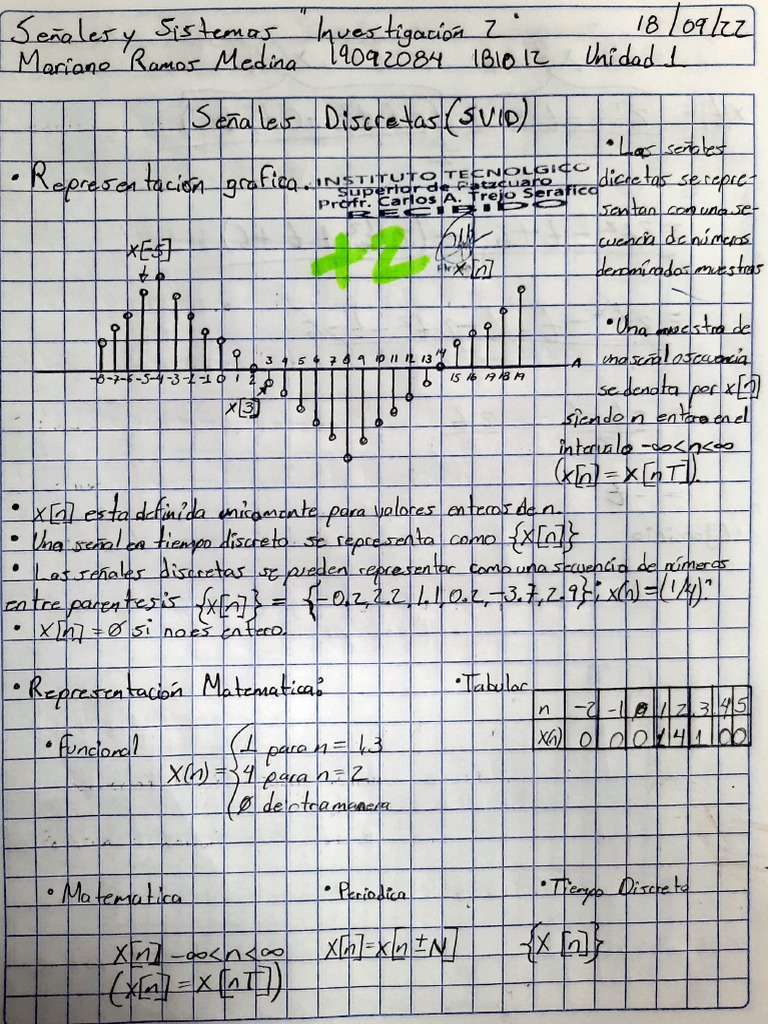 Señales y Sistemas "Investigación 2" 18/09/22
Mariano Ramos Medina 19092084 181012 Unidad 1
Señales Discretas (SVID)
• Representación grafica.
INSTITUTO TECNOLGICO
Superior de Patzcuaro
Profr. Carlos A. Trejo Serafico
RECIBIDO
+2
• Las señales
discretas se repre-
sentan con una se-
cuencia de números
denominados muestras
x[-5]
x[n]
-8 -7 -6 -5 -4 -3 -2 -1 0 1 2 3 4 5 6 7 8 9 10 11 12 13 14 15 16 17 18 19
x[3]
• Una muestra de
una señal o secuencia
se denota por x[n]
siendo n entero en el
intervalo -∞<n<∞
(x[n] = x[nT]).
• x[n] esta definida unicamente para valores enteros de n.
• Una señal en tiempo discreto se representa como {x[n]}
• Las señales discretas se pueden representar como una secuencia de números
entre parentesis {x[n]} = {-0.2, 2.2, 1.1, 0.2, -3.7, 2.9}; x(n) = (1/4)ⁿ
• x[n] = 0 si no es entero.
• Representación Matematica:
• Tabular
n -2 -1 0 1 2 3 4 5
x(n) 0 0 0 1 4 1 0 0
• Funcional
x(n) = { 1 para n = 1,3
4 para n = 2
0 de otra manera
• Matematica • Periodica • Tiempo Discreto
x[n] -∞<n<∞ x[n]=x[n±N] {x[n]}
(x[n] = x[nT])